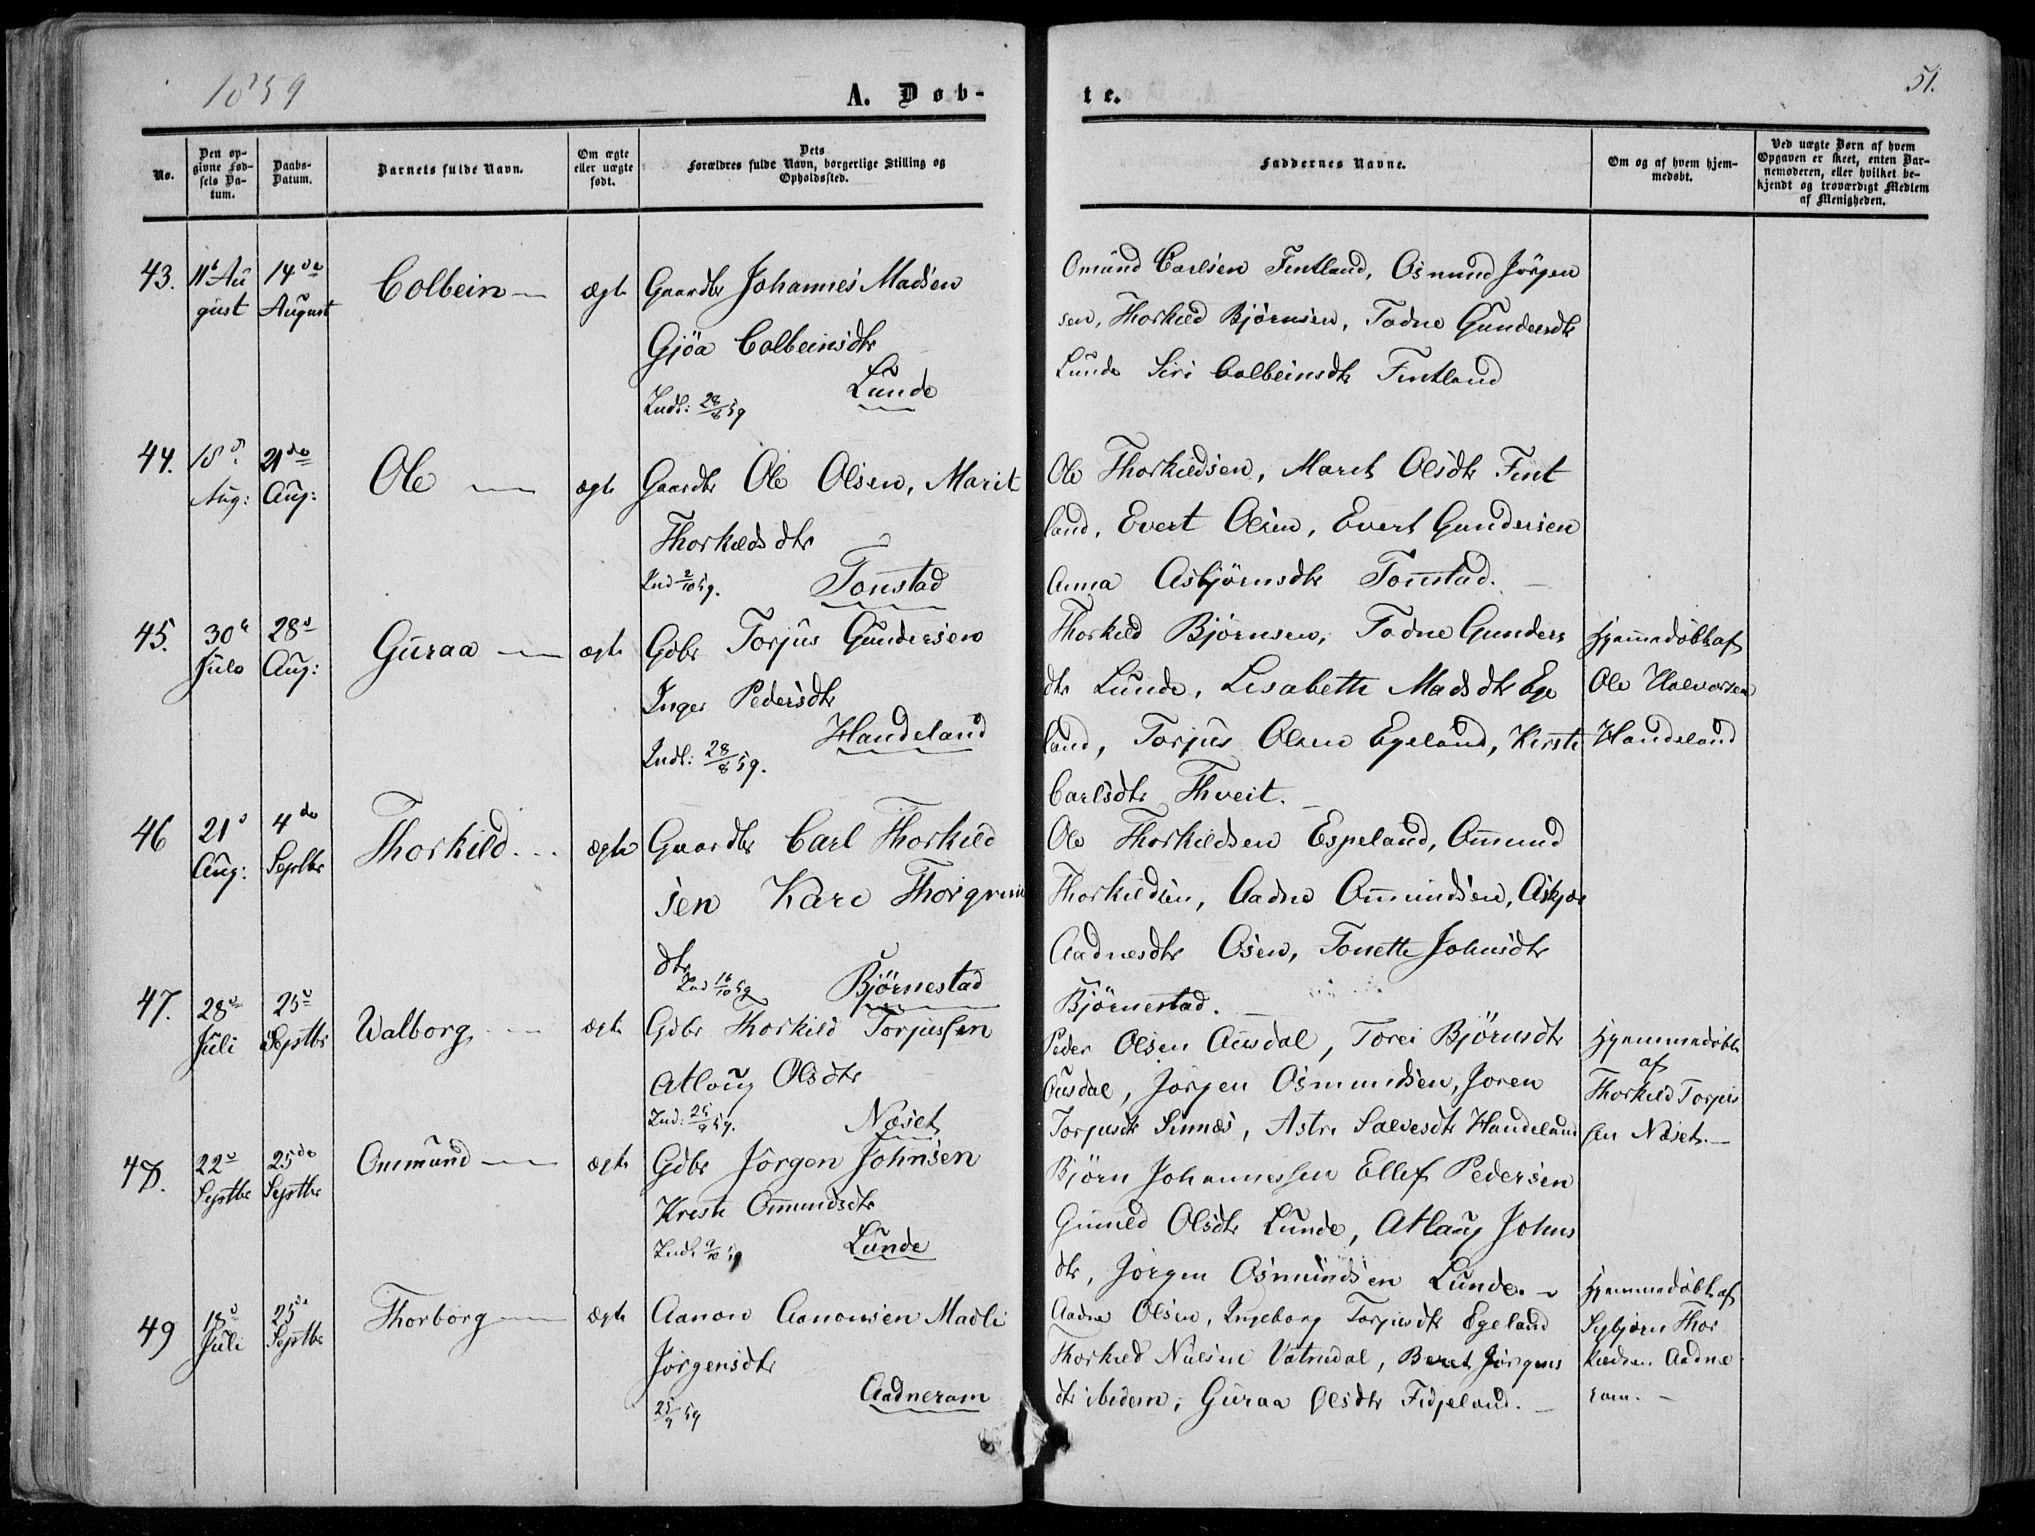 1859
A. Døb-
te.
51.
No.
Den op-
givne Fød-
sels Da-
tum.
Daabs-
Datum.
Barnets fulde Navn.
Om ægte
eller uægte
født.
Dets
Forældres fulde Navn, borgerlige Stilling og
Opholdssted.
Faddernes Navne.
Om og af hvem hjem-
medøbt.
Ved uægte Børn af hvem
Opgaven er skeet, enten Bar-
nemoderen, eller hvilket be-
kjendt og troværdigt Medlem
af Menigheden.
43.
11t Au
gust
14de
August
Colbein
ægte
Gaardbr Johannes Madsen
Gjöa Colbeinsdtr
Lunde
Indl: 28/8 59
Omund Carlsen Fintland, Osmund Jörgen
sen, Thorkild Bjørnsen, Todne Gundersdtr
Lunde Siri Colbeinsdtr Fintland
44.
18d
Aug:
21de
Aug:
Ole
ægte
Gaardbr Ole Olsen, Marit
Thorkildsdtr
Tonstad
Ind 2/10 59.
Ole Thorkildsen, Marit Olsdtr Fint
land, Evert Olsen, Evert Gundersen
Anna Asbjørnsdtr Tonstad.
45.
30te
Juli
28d
Aug:
Guraa
ægte
Gdbr Torjus Gundersen
Inger Pedersdtr
Handeland
Indl: 28/8 59.
Thorkild Bjørnsen, Todne Gunders
dtr Lunde, Lisabeth Madsdtr Ege
land, Torjus Olsen Egeland, Kirsti
Carlsdtr Thveit.
Hjemmedøbt af
Ole Halvorsen
Handeland
46
21d
Aug:
4de
Septbr
Thorkild
ægte
Gaardbr Carl Thorkild
sen Kare Thorgrims
dtr
Bjørnestad
Ind 16/10 59
Ole Thorkildsen Espeland, Omund
Thorkildsen, Aadne Omundsen, Askjær
Aadnesdtr Osen, Tonette Johnsdtr
Bjørnestad.
47.
28d
Juli
25d
Septbr
Walborg
ægte
Gdbr Thorkild Torjussen
Atlaug Olsdtr
Næset
Ind: 25/9 59.
Peder Olsen Ausdal, Torei Bjørnsdtr
Ausdal, Jörgen Osmundsen, Joren
Torjusdtr Sinnes, Astri Salvesdtr Handeland
Hjemmedøbt
af
Thorkild Torjus
sen Næset.
48.
22d
Septbr
25de
Septbr
Ommund
ægte
Gdbr Jörgen Johnsen
Kirsti Omundsdtr
Lunde
Indl 9/10 59
Bjørn Johannessen Ellef Pedersen
Gunild Olsdtr Lunde, Atlaug Johns
dtr, Jörgen Osmundsen Lunde.
49
18d
Juli
25de
Septbr
Thorborg
ægte
Aanon Aanonsen Madli
Jörgensdtr
Aadneram
25/9 59
Aadne Olsen, Ingeborg Torjusdtr Egeland
Thorkild Nilsen Vatnedal, Beret Jörgens
dtr ibidem, Guraa Olsdtr Fidjeland.
Hjemmedøbt af
Sigbjørn Thor
kildsen Aadne
ram.